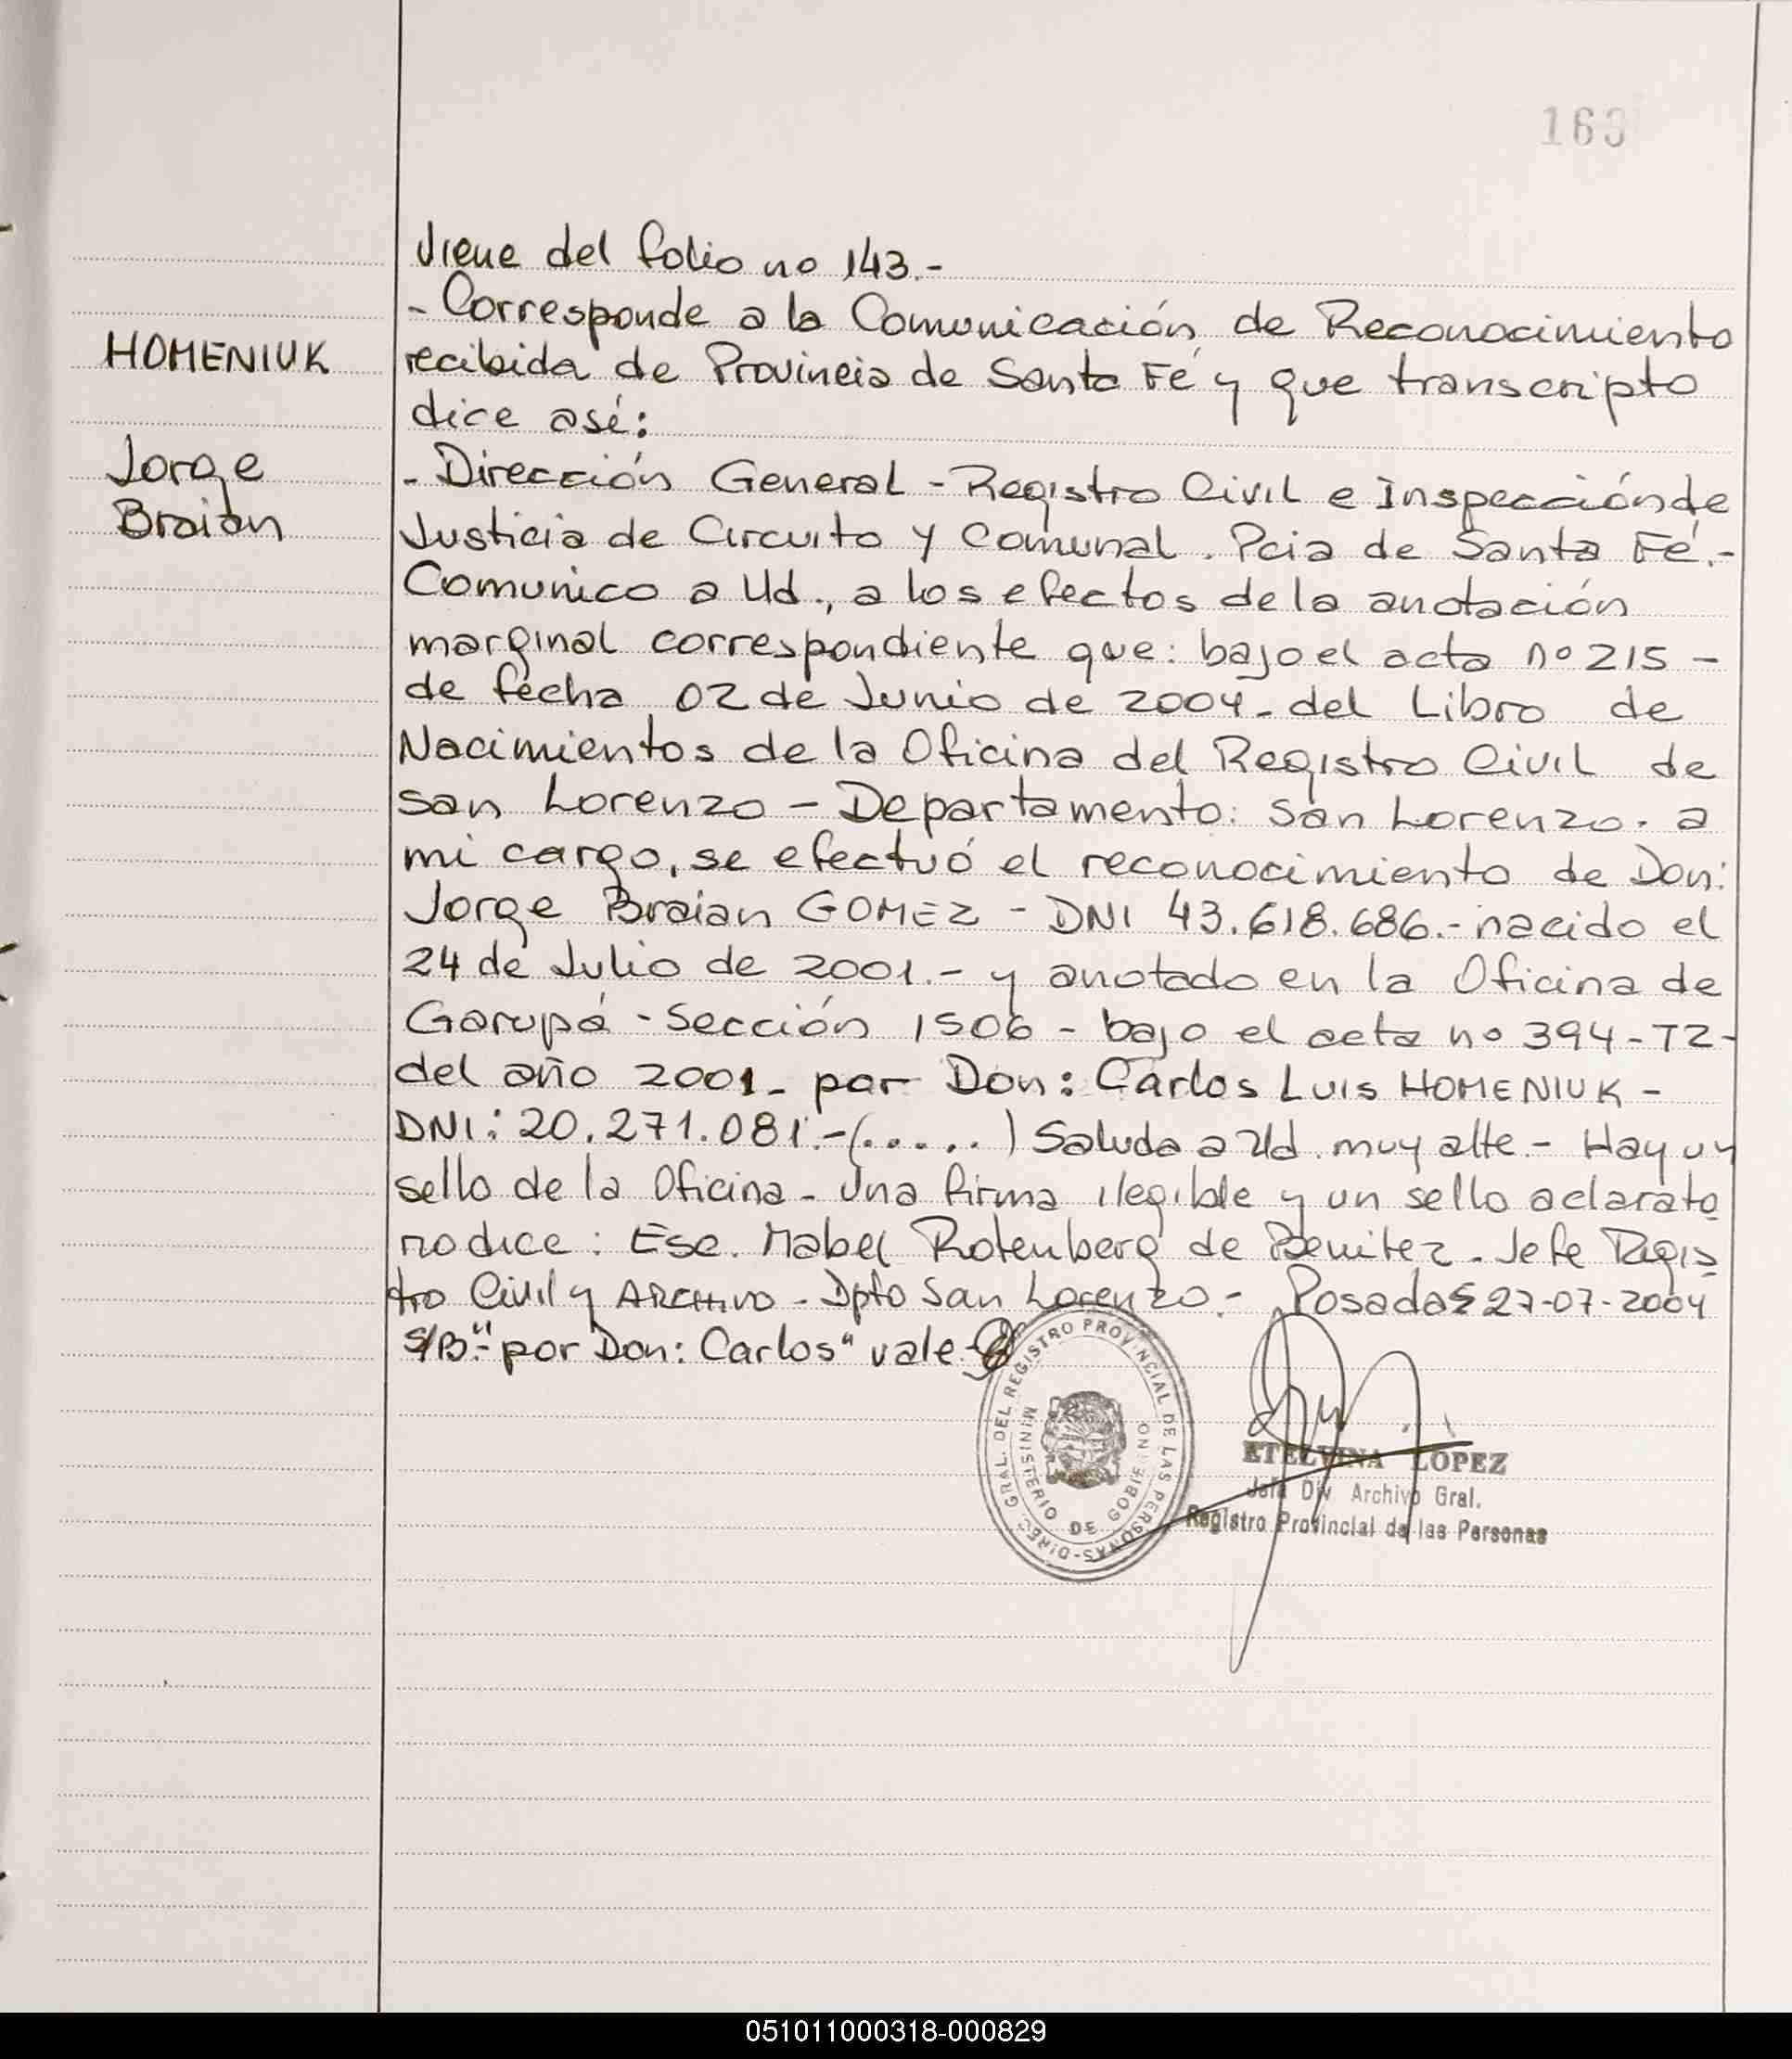 160
Viene del folio no 143.-
- Corresponde a la Comunicación de Reconocimiento
HOMENIUK
recibida de Provincia de Santa Fé y que transcripto
dice así:
Jorge
Braian
- Dirección General - Registro Civil e Inspección de
Justicia de Circuito y Comunal. Pcia de Santa Fé.-
Comunico a Ud., a los efectos de la anotación
marginal correspondiente que: bajo el acta nº 215 -
de fecha 02 de Junio de 2004 - del Libro de
Nacimientos de la Oficina del Registro Civil de
San Lorenzo - Departamento: San Lorenzo. a
mi cargo, se efectuó el reconocimiento de Don:
Jorge Braian GOMEZ - DNI 43.618.686.- nacido el
24 de Julio de 2001.- y anotado en la Oficina de
Garupá - Sección 1506 - bajo el acta nº 394 - T2 -
del año 2001 - por Don: Carlos Luis HOMENIUK -
DNI: 20.271.081.- (.....) Saluda a Ud. muy atte - Hay un
sello de la Oficina - Una firma ilegible y un sello aclarato
rio dice: Esc. Mabel Rotenberg de Benitez - Jefe Regis
tro Civil y ARCHIVO - Dpto San Lorenzo.- Posadas 27-07-2004
S/B:"por Don: Carlos" vale-
DIREC. GRAL. DEL REGISTRO PROVINCIAL DE LAS PERSONAS-
MINISTERIO DE GOBIERNO
ETELVINA LOPEZ
Jefa Div. Archivo Gral.
Registro Provincial de las Personas
051011000318-000829